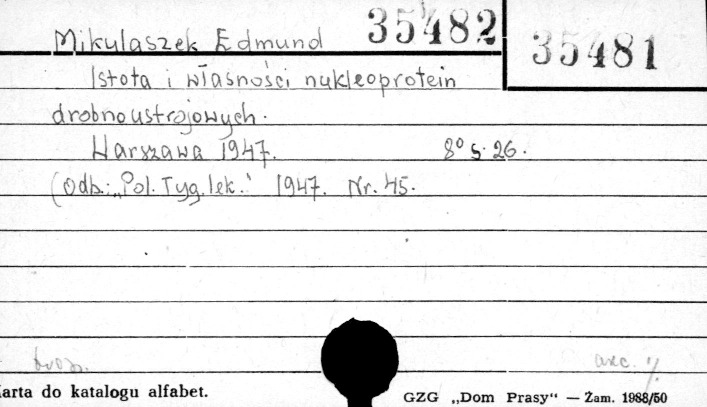 Mikulaszek Edmund 35482 35481
Istota i własności nukleoprotein
drobnoustrojowych.
Warszawa 1947. 8° s. 26.
(Odb.: „Pol. Tyg. lek.” 1947. Nr. 45.
brosz.
arta do katalogu alfabet.
GZG „Dom Prasy“ — Zam. 1988/50